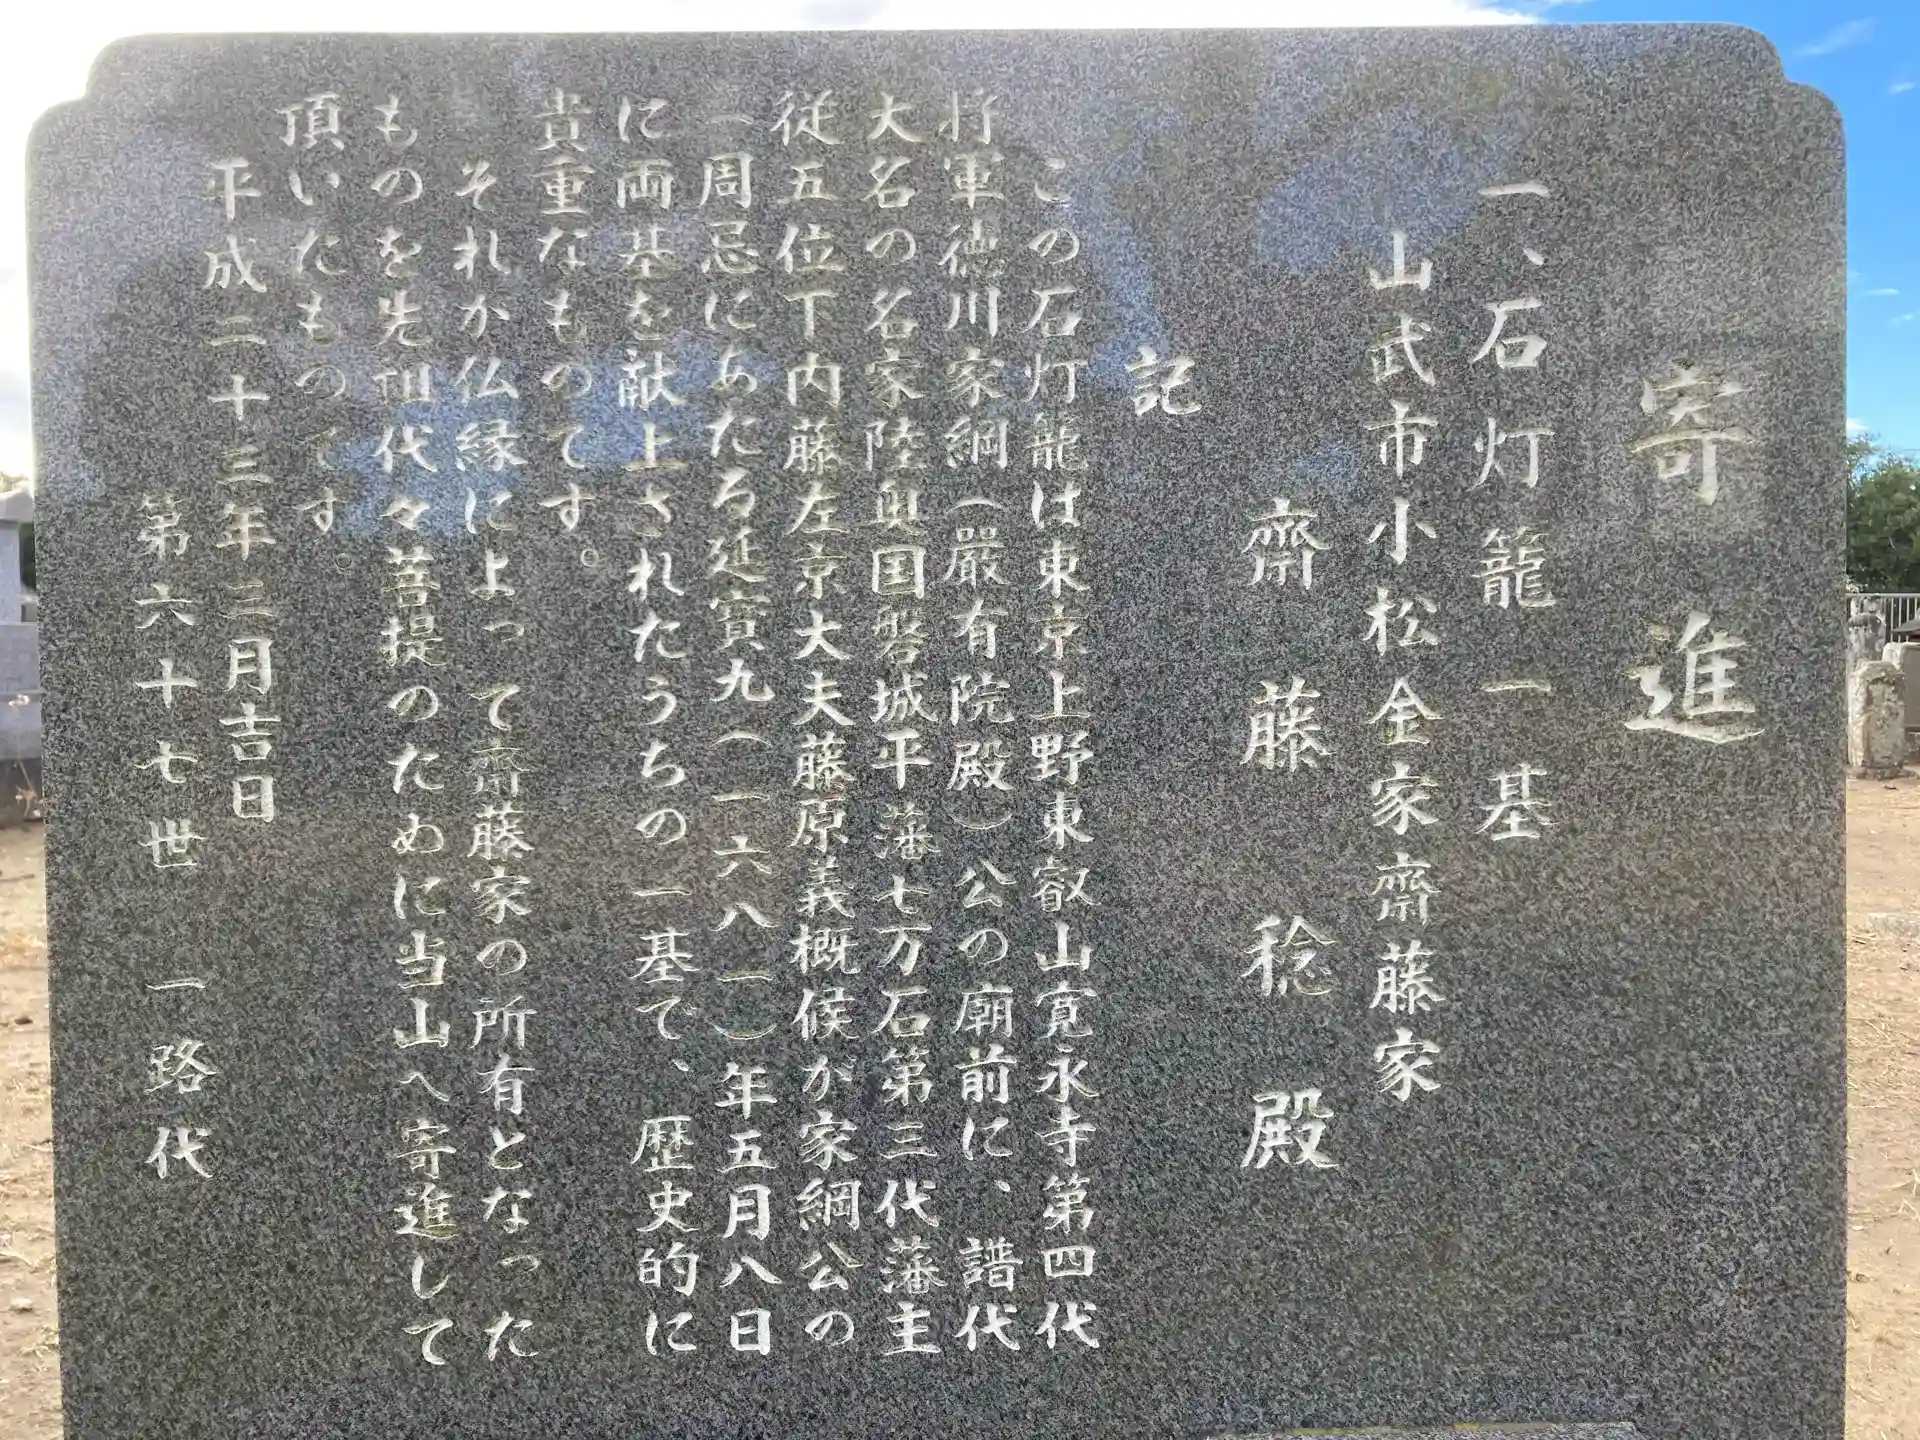 寄進
一、石灯籠一基
山武市小松金家齋藤家
齋藤稔殿
記
この石灯籠は東京上野東叡山寛永寺第四代
将軍徳川家綱（嚴有院殿）公の廟前に、譜代
大名の名家陸奥国磐城平藩七万石第三代藩主
従五位下内藤左京大夫藤原義概候が家綱公の
一周忌にあたる延寳九（一六八一）年五月八日
に両基を献上されたうちの一基で、歴史的に
貴重なものてす。
それが仏縁によって齋藤家の所有となった
ものを先祖代々菩提のために当山へ寄進して
頂いたものてす。
平成二十三年三月吉日
第六十七世　一路代